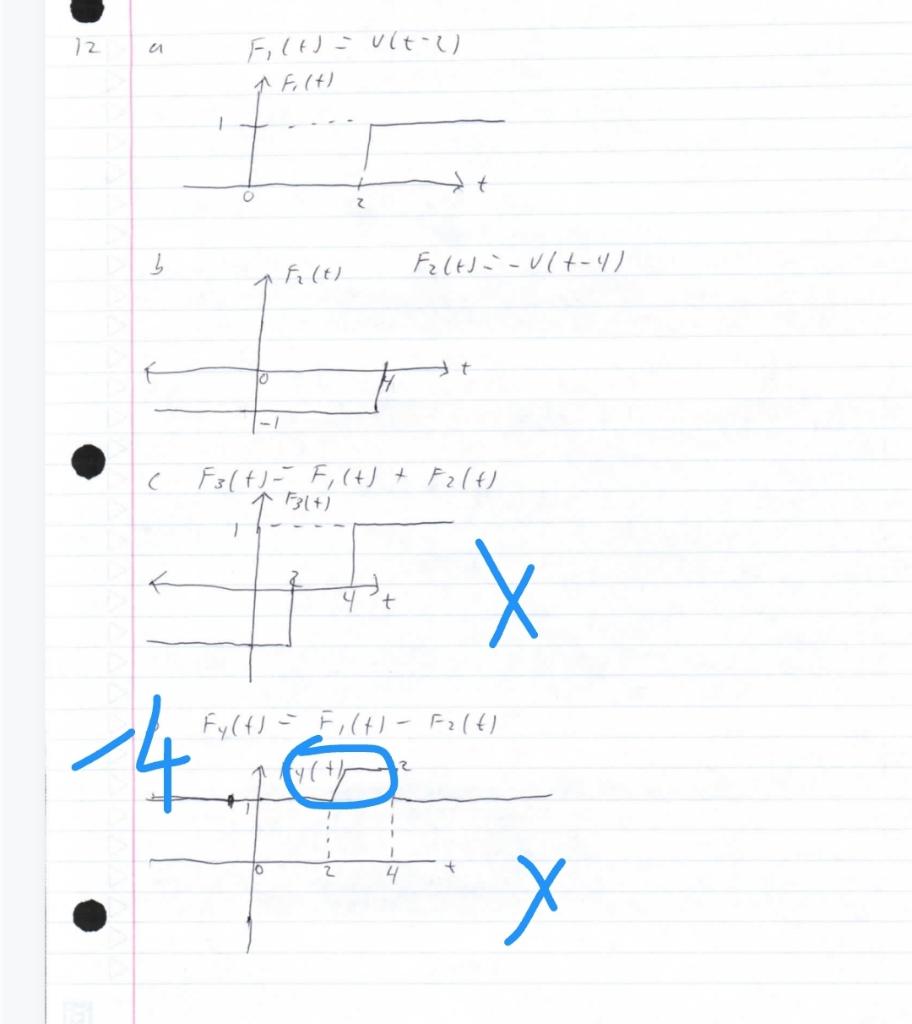 12 a F₁(t) = u(t-2)
F₁(t)
1
0 2 t
b F₂(t) F₂(t) = -u(t-4)
0 4 t
-1
c F₃(t) = F₁(t) + F₂(t)
F₃(t)
1
2
4 t
-4 F₄(t) = F₁(t) - F₂(t)
X
y(t) 2
1
0 2 4 t
X